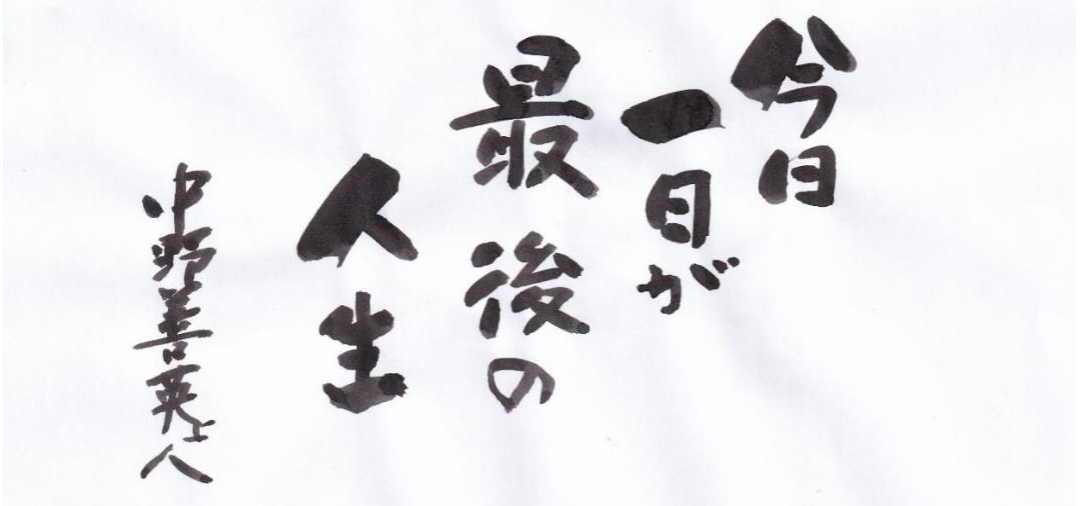 今日
一日が
最後の
人生
中野善英上人